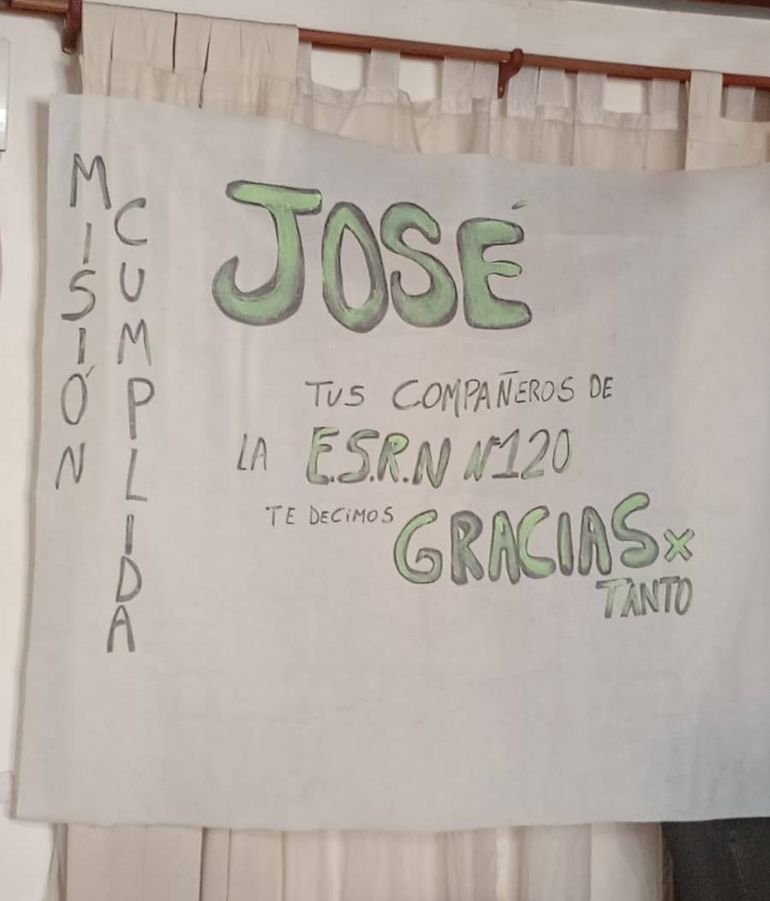 MISIÓN
CUMPLIDA
JOSÉ
TUS COMPAÑEROS DE
LA E.S.R.N Nº120
TE DECIMOS GRACIAS x
TANTO